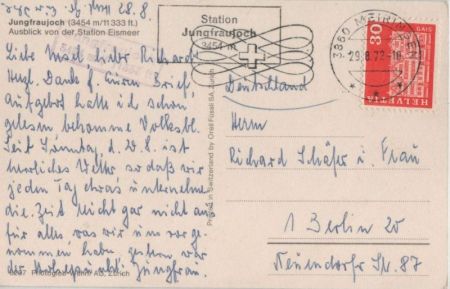 28.8.
Jungfraujoch (3454 m/11 333 ft.)
Ausblick von der Station Eismeer
Station
Jungfraujoch
3454 m
3860 MEIRINGEN
29.8.72-18
30
HELVETIA
GAIS
Liebe Insel, lieber Richard!
Herzl. Dank f. Euren Brief,
Aufgebot hatte ich schon
gelesen, bekomme Volksbl.
Seit Sonntag, d. 20.8. ist
herrliches Wetter, so daß wir
jeden Tag etwas unternehmen
die Zeit reicht gar nicht aus
für alles, was wir uns vorge-
nommen haben, gestern war
der Höhepunkt Jungfrau.
Deutschland
Herrn
Richard Schäfer u. Frau
1 Berlin 20
Neuendorfer Str. 87
Printed in Switzerland by Orell Füssli SA, Zürich
Photoglob-Wehrli AG, Zürich